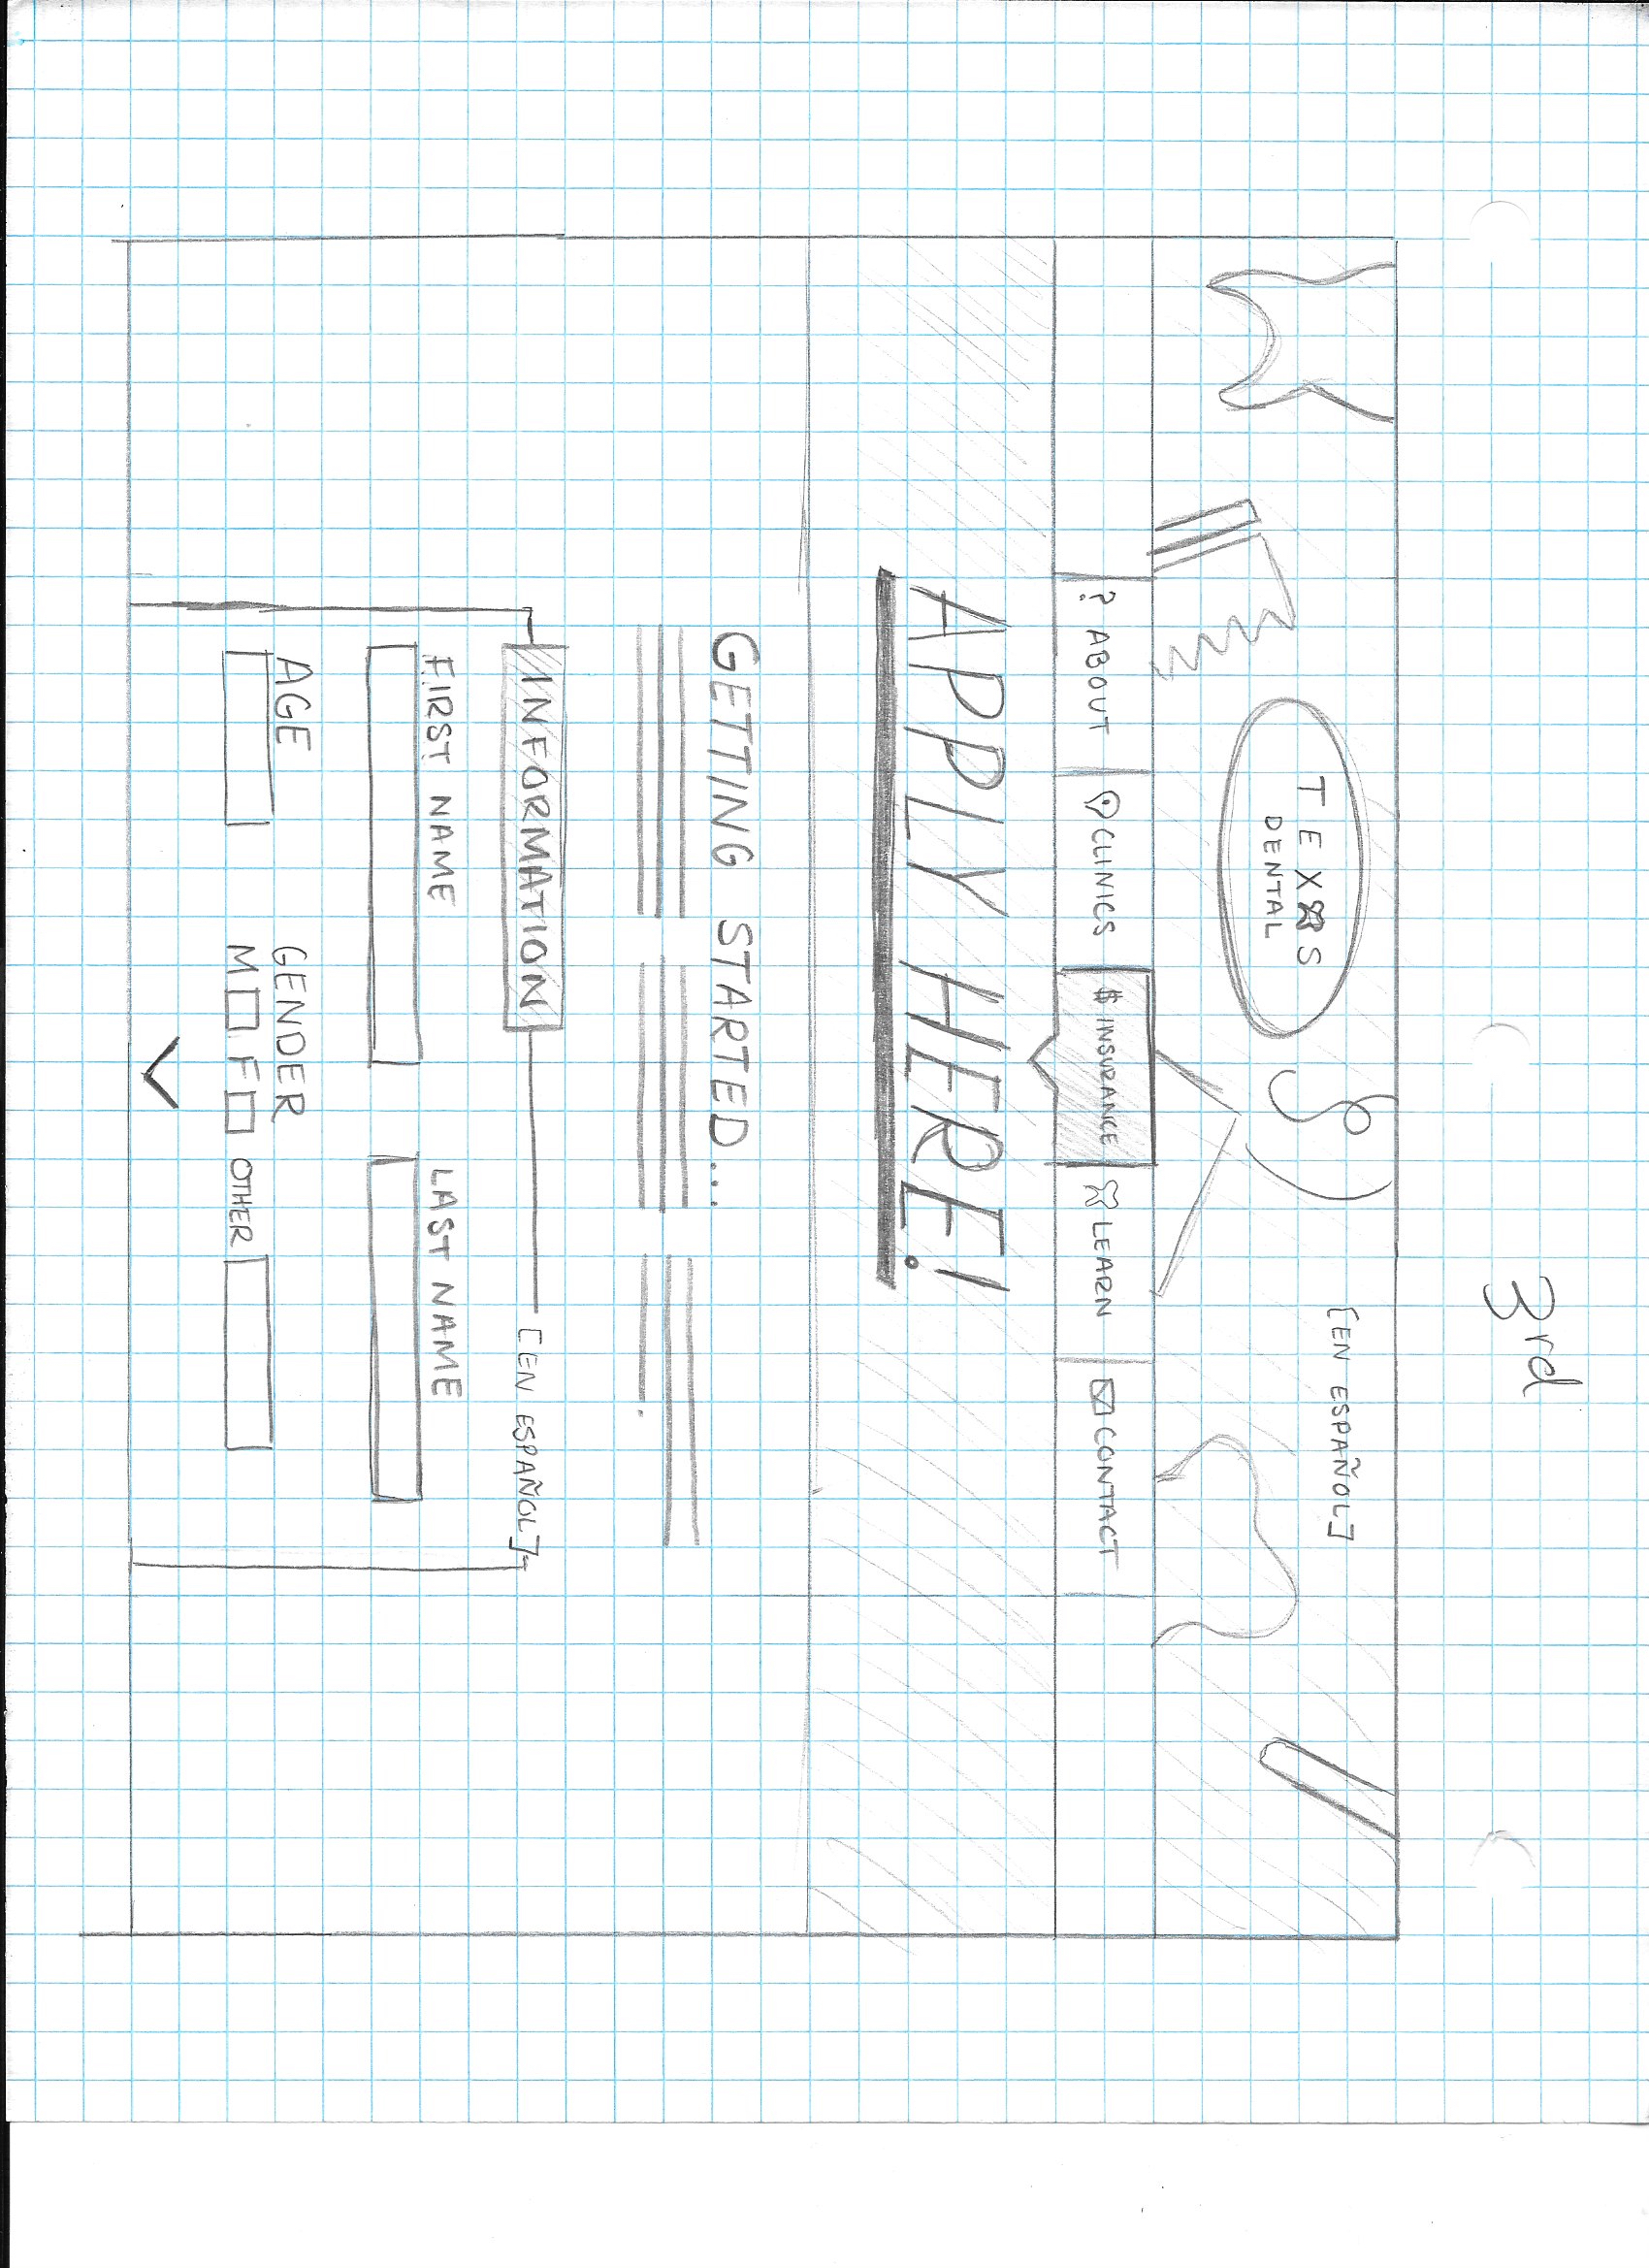 3rd
[EN ESPAÑOL]
TEXAS
DENTAL
? ABOUT
CLINICS
$ INSURANCE
LEARN
CONTACT
APPLY HERE!
GETTING STARTED...
INFORMATION
[EN ESPAÑOL]
FIRST NAME
LAST NAME
AGE
GENDER
M F OTHER